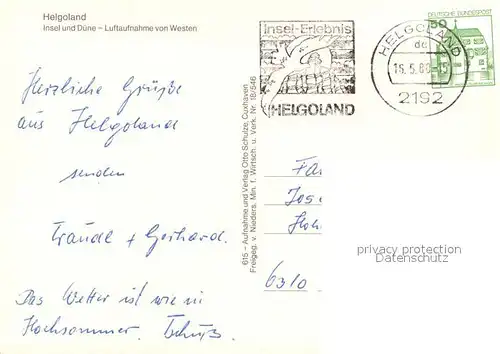 Helgoland
Insel und Düne – Luftaufnahme von Westen
Insel-Erlebnis
HELGOLAND
HELGOLAND
dc
2192
DEUTSCHE BUNDESPOST
50
Herzliche Grüße
aus Helgoland
senden
Traudl + Gerhard.
Das Wetter ist wie im
Hochsommer. Tschüß.
615 – Aufnahme und Verlag Otto Schulze, Cuxhaven
Freigeg. v. Nieders. Min. f. Wirtsch. u. Verk. Nr. 18/546
Fa
Jose
Hoh
6310
privacy protection
Datenschutz